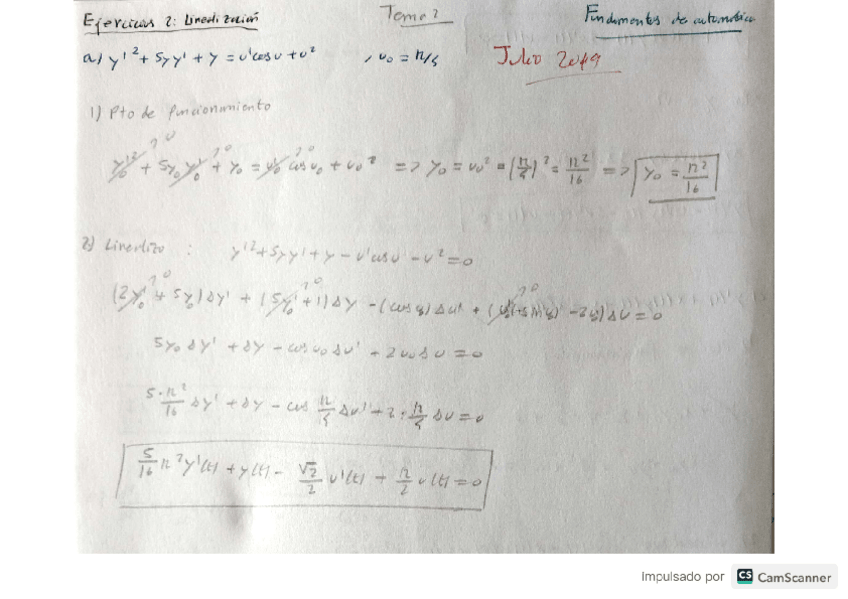 Ejercicios 2: Linealización Tema 2 Fundamentos de automática
a) y'² + 5yy' + y = u'cosu + u² , u₀ = π/4 Julio 2019
1) Pto de funcionamiento
y₀'² + 5y₀y₀' + y₀ = u₀' cosu₀ + u₀² => y₀ = u₀² = (π/4)² = π²/16 => y₀ = π²/16
2) Linealizo : y'² + 5yy' + y - u'cosu - u² = 0
(2y₀' + 5y₀)Δy' + (5y₀' + 1)Δy - (cosu₀)Δu' + (u₀'(+senu₀) - 2u₀)Δu = 0
5y₀Δy' + Δy - cosu₀Δu' - 2u₀Δu = 0
5·π²/16 Δy' + Δy - cos π/4 Δu' - 2·π/4 Δu = 0
5/16 π² y'(t) + y(t) - √2/2 u'(t) - π/2 u(t) = 0
Impulsado por CS CamScanner